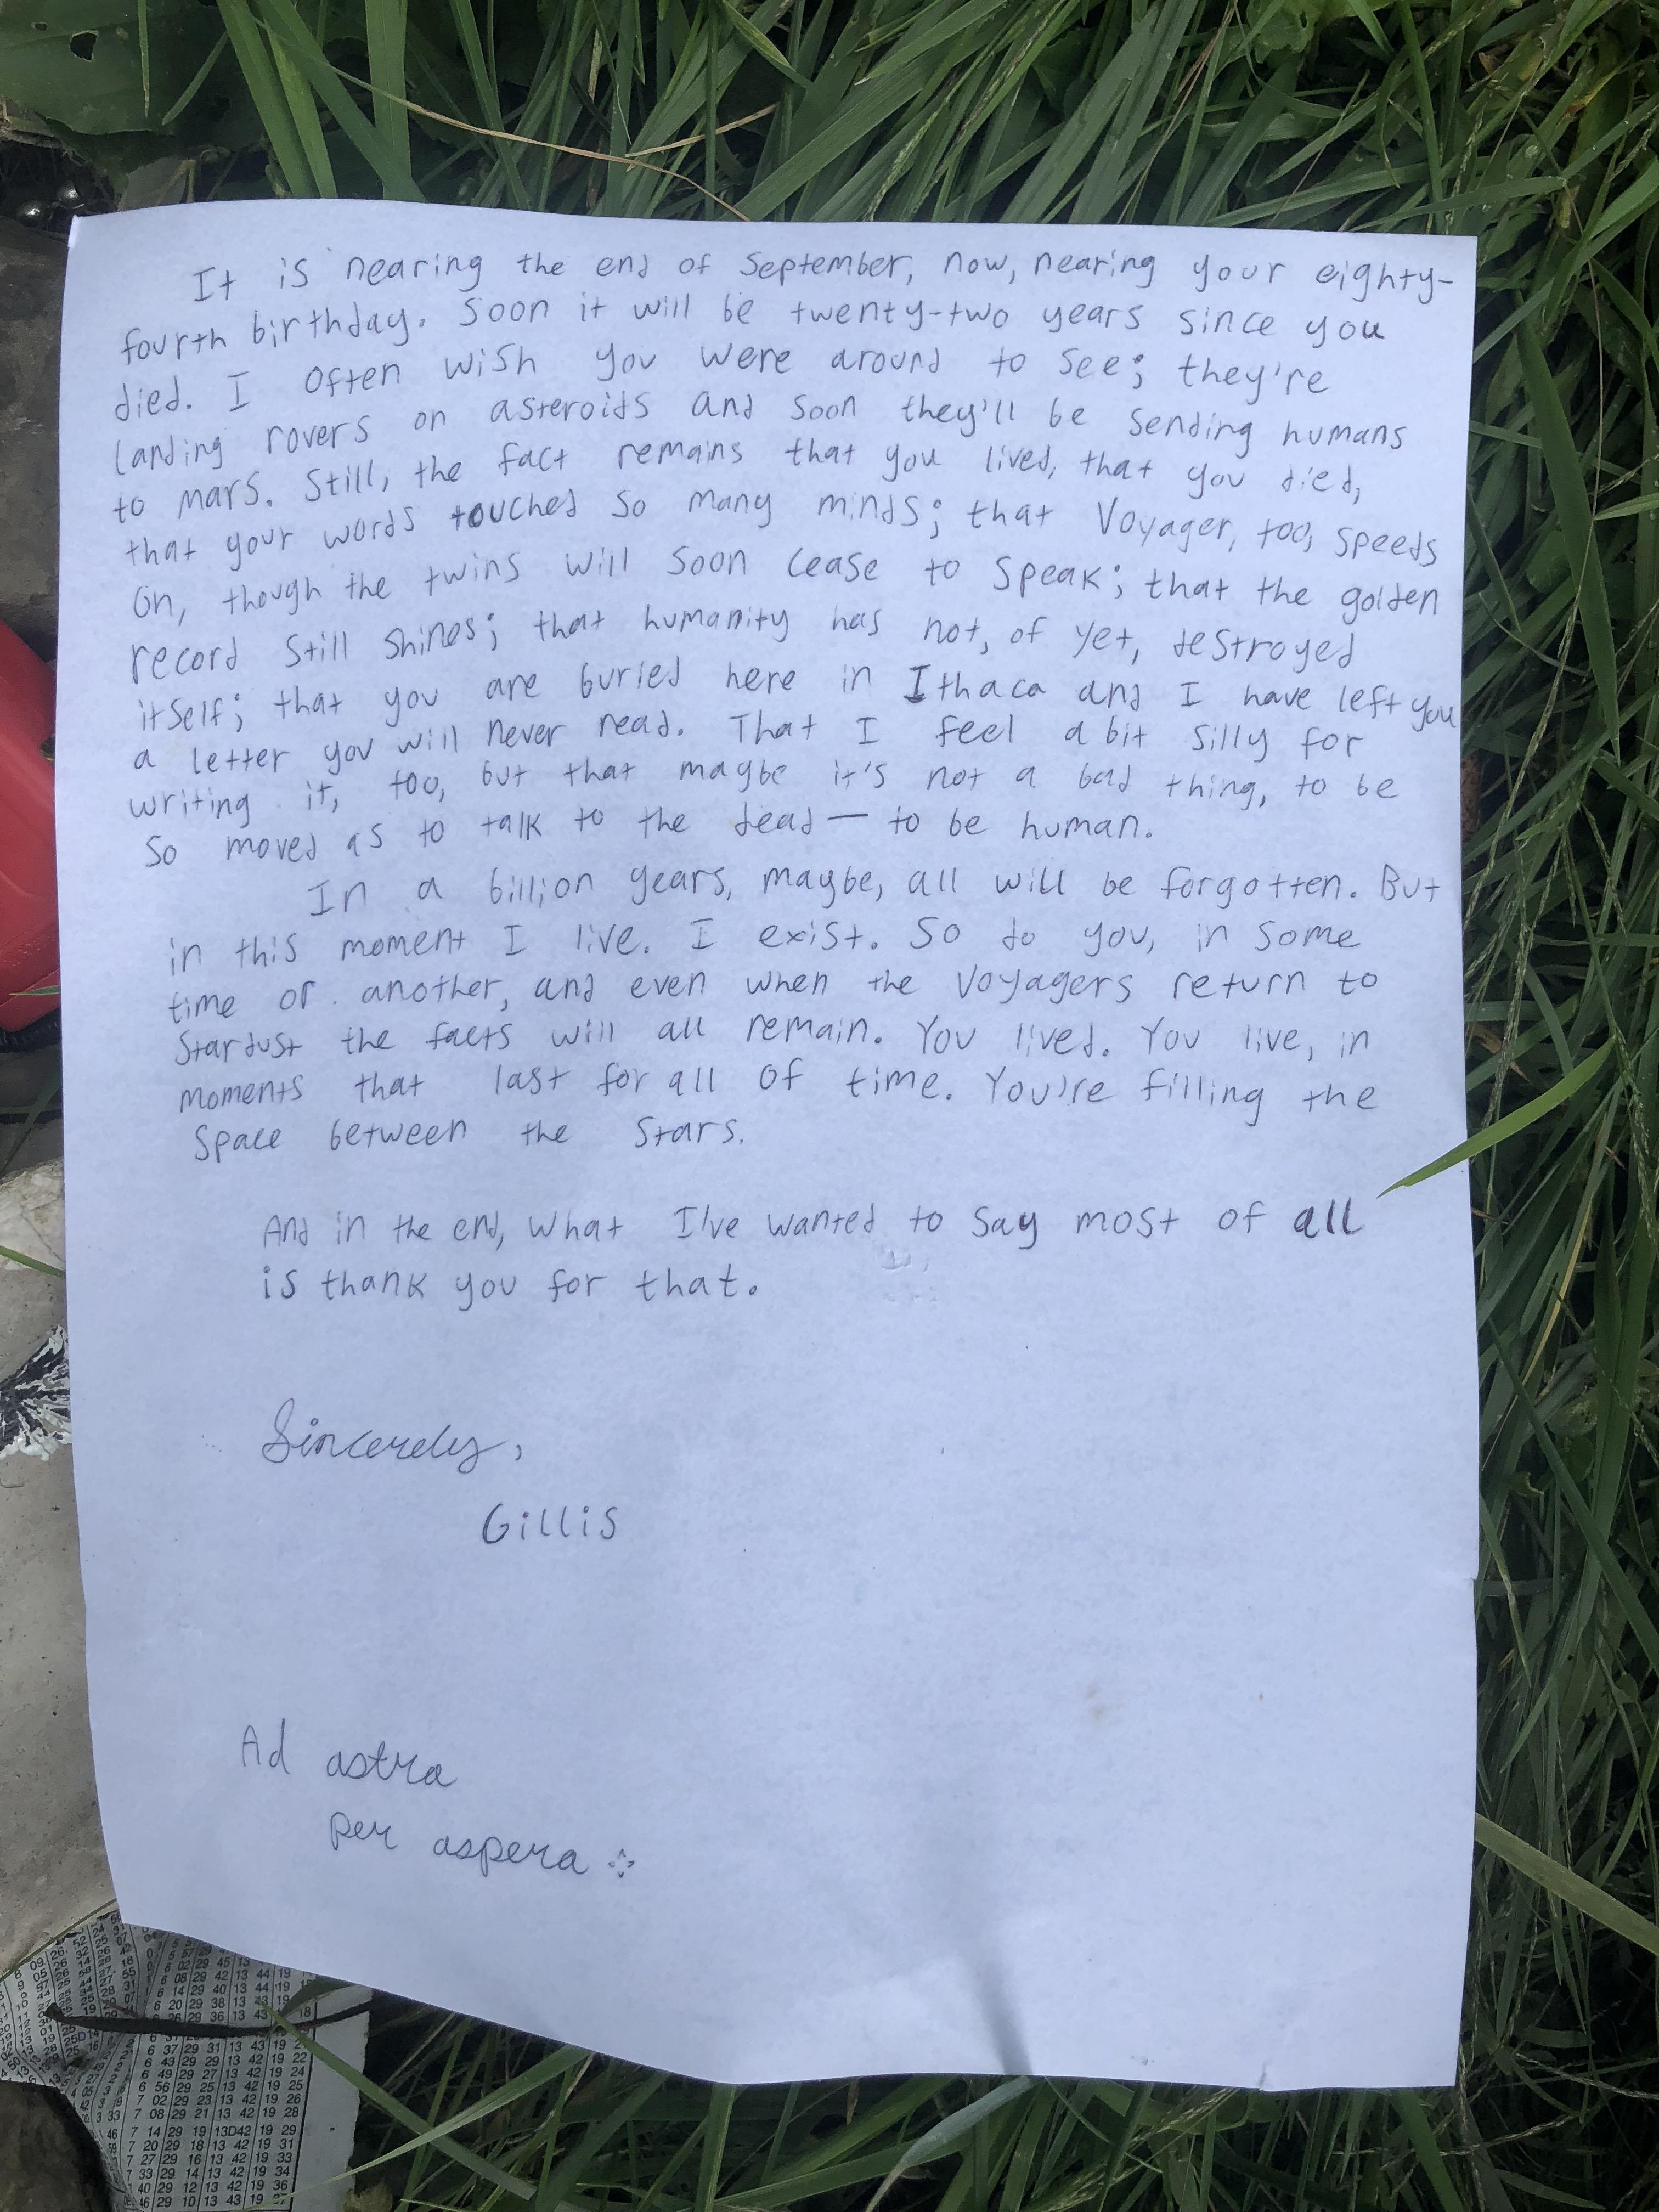 It is nearing the end of September, now, nearing your eighty-
fourth birthday. Soon it will be twenty-two years since you
died. I often wish you were around to see; they're
landing rovers on asteroids and soon they'll be sending humans
to mars. Still, the fact remains that you lived, that you died,
that your words touched so many minds; that Voyager, too, speeds
on, though the twins will soon cease to speak; that the golden
record still shines; that humanity has not, of yet, destroyed
itself; that you are buried here in Ithaca and I have left you
a letter you will never read. That I feel a bit silly for
writing it, too, but that maybe it's not a bad thing, to be
so moved as to talk to the dead — to be human.
In a billion years, maybe, all will be forgotten. But
in this moment I live. I exist. So do you, in some
time or another, and even when the Voyagers return to
stardust the facts will all remain. You lived. You live, in
moments that last for all of time. You're filling the
space between the stars.
And in the end, what I've wanted to say most of all
is thank you for that.
Sincerely,
Gillis
Ad astra
per aspera
6 08 29 42 13 44 19
6 14 29 40 13 44 19
6 20 29 38 13 43 19
6 37 29 31 13 43 19
6 43 29 29 13 42 19 22
6 49 29 27 13 42 19 24
6 56 29 25 13 42 19 25
7 02 29 23 13 42 19 26
7 08 29 21 13 42 19 28
7 14 29 19 13D42 19 29
7 20 29 18 13 42 19 31
7 27 29 16 13 42 19 33
7 33 29 14 13 42 19 34
40 29 12 13 42 19 36
46 29 10 13 43 19 37